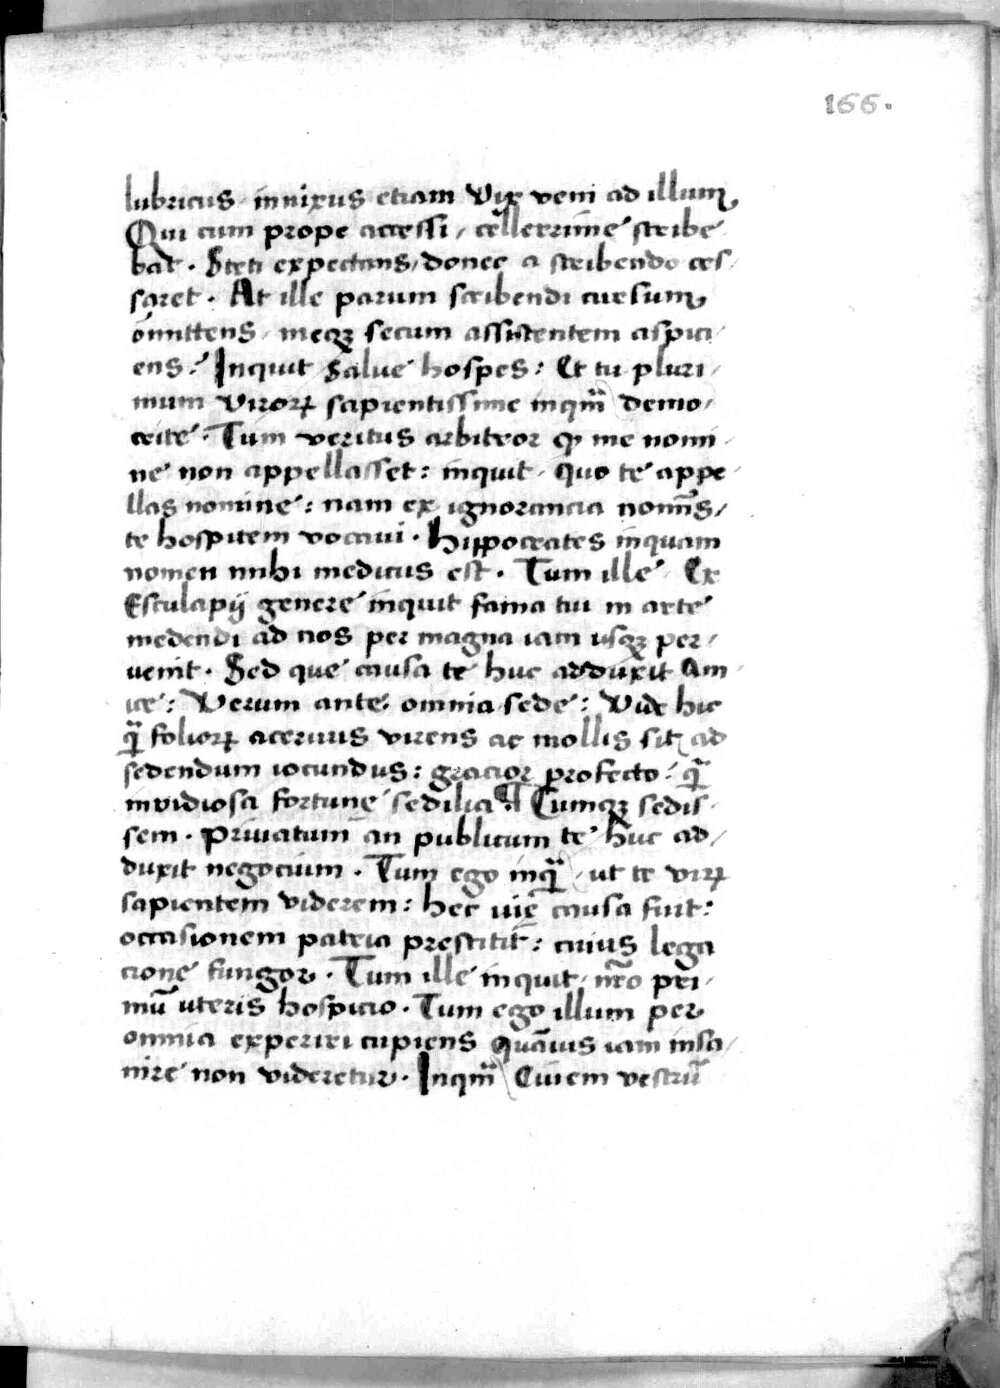 166.
lubricus innixus etiam Vix veni ad illum,
Qui cum prope accessi / celerrime scribe
bat . Steti expectans / donec a scribendo ces /
saret . At ille parum scribendi cursum,
omittens / meqꝫ secum assistentem aspici /
ens . Inquit Salue hospes : Et tu pluri /
mum Virorꝝ sapientissime inqm̄ demo /
crite . Tum veritus arbitror ꝙ me nomi /
ne non appellasset : inquit / quo te appe /
llas nomine : nam ex ignorancia nomīs /
te hospitem vocaui . Hippocrates inquam
nomen mihi medicus est . Tum ille Ex
Esculapij genere inquit fama tui in arte
medendi ad nos per magna iam usqꝫ per /
uenit . Sed que causa te huc adduxit Am /
ice : Verum ante omnia sede : Vide hic
q̄ foliorꝝ aceruus virens ac mollis sit ad
sedendum iocundus : gracior profecto : q̄
inuidiosa fortunę sedilia ¶ Cumqꝫ sedis /
sem . Priuatum an publicum te huc ad /
duxit negocium . Tum ego inq̄ / ut te virꝝ
sapientem viderem : hec uię causa fuit :
occasionem patria prestitit : cuius lega
cione fungor . Tum ille inquit / nr̄o pri /
mū uteris hospicio . Tum ego illum per
omnia experiri cupiens quāuis iam insa /
nire non videretur . Inqm̄ Ciuem vestrū